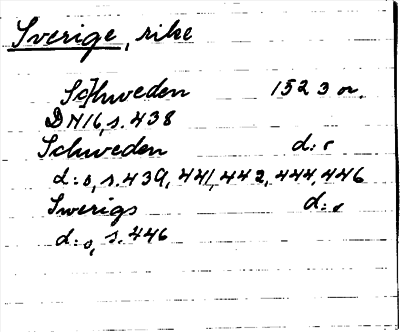 Sverige, rike
Schweden 1523 or.
DN16, s. 438
Schweden d:o
d:o, s. 439, 441, 442, 444, 446
Swerigs d:o
d:o, s. 446